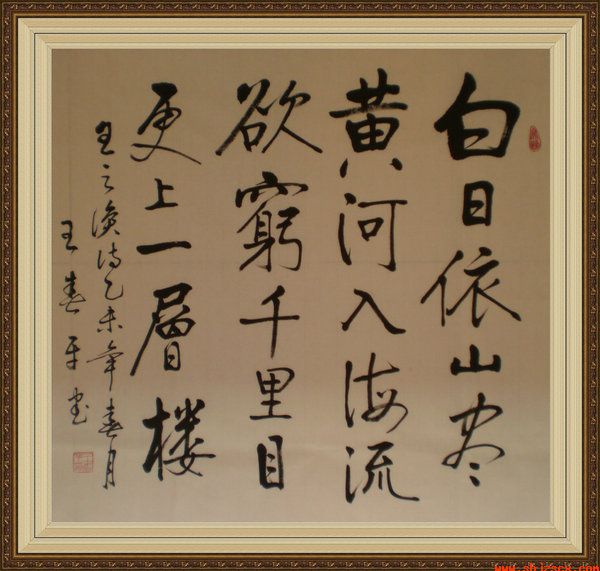 白日依山尽
黄河入海流
欲窮千里目
更上一層楼
王之涣诗乙未年春月
王春平书